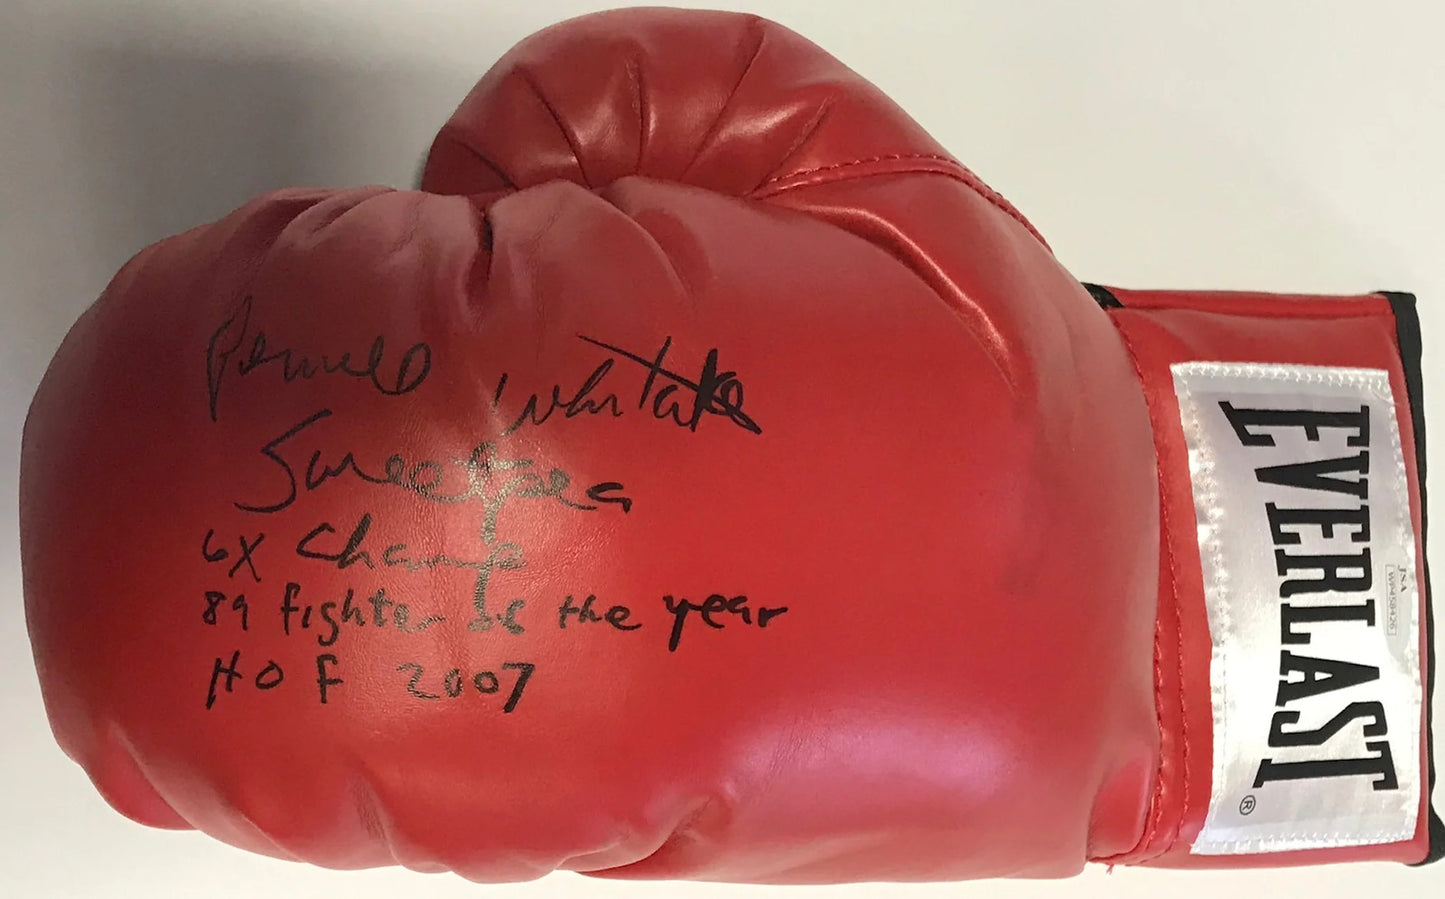 Pernell Whitaker
Sweetpea
6X Champ
89 fighter of the year
HOF 2007
EVERLAST
®
JSA
WP458426